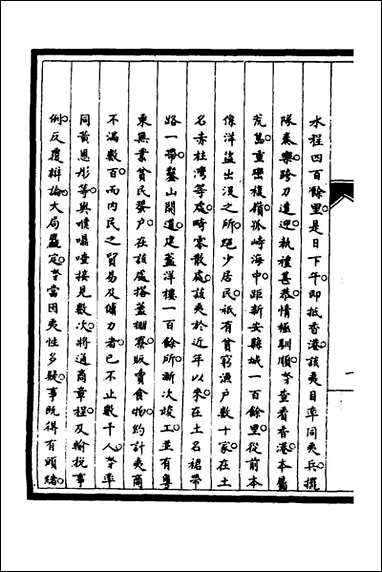 水程四百餘里是日下午即抵香港該夷目率同夷兵擺
隊奏樂跨刀道迎執禮甚恭情極馴順等查看香港本屬
荒島重巒複嶺孤峙海中距新安縣城一百餘里從前本
係洋盜出沒之所絕少居民祇有貧窮漁戶數十家在土
名赤柱灣等處畸零散處該夷於近年以來在土名裙帶
路一帶鑿山開道建蓋洋樓一百餘所漸次竣工並有粵
東無業貧民蜑户在該處搭蓋棚寮販賣食物約計夷商
不滿數百而內民之貿易及傭力者已不止數千人等率
同黃恩彤等與噗嚊喳接見數次將通商章程及輸稅事
例反覆辯論大局粗定等當因夷性多疑事既得有頭緒